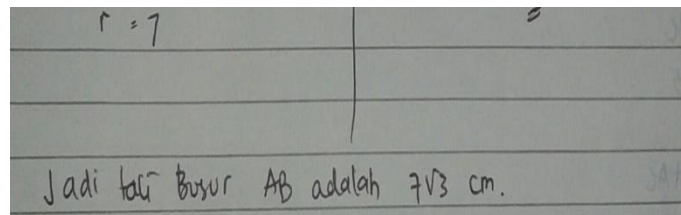 r = 7
=
Jadi tali Busur AB adalah 7√3 cm.